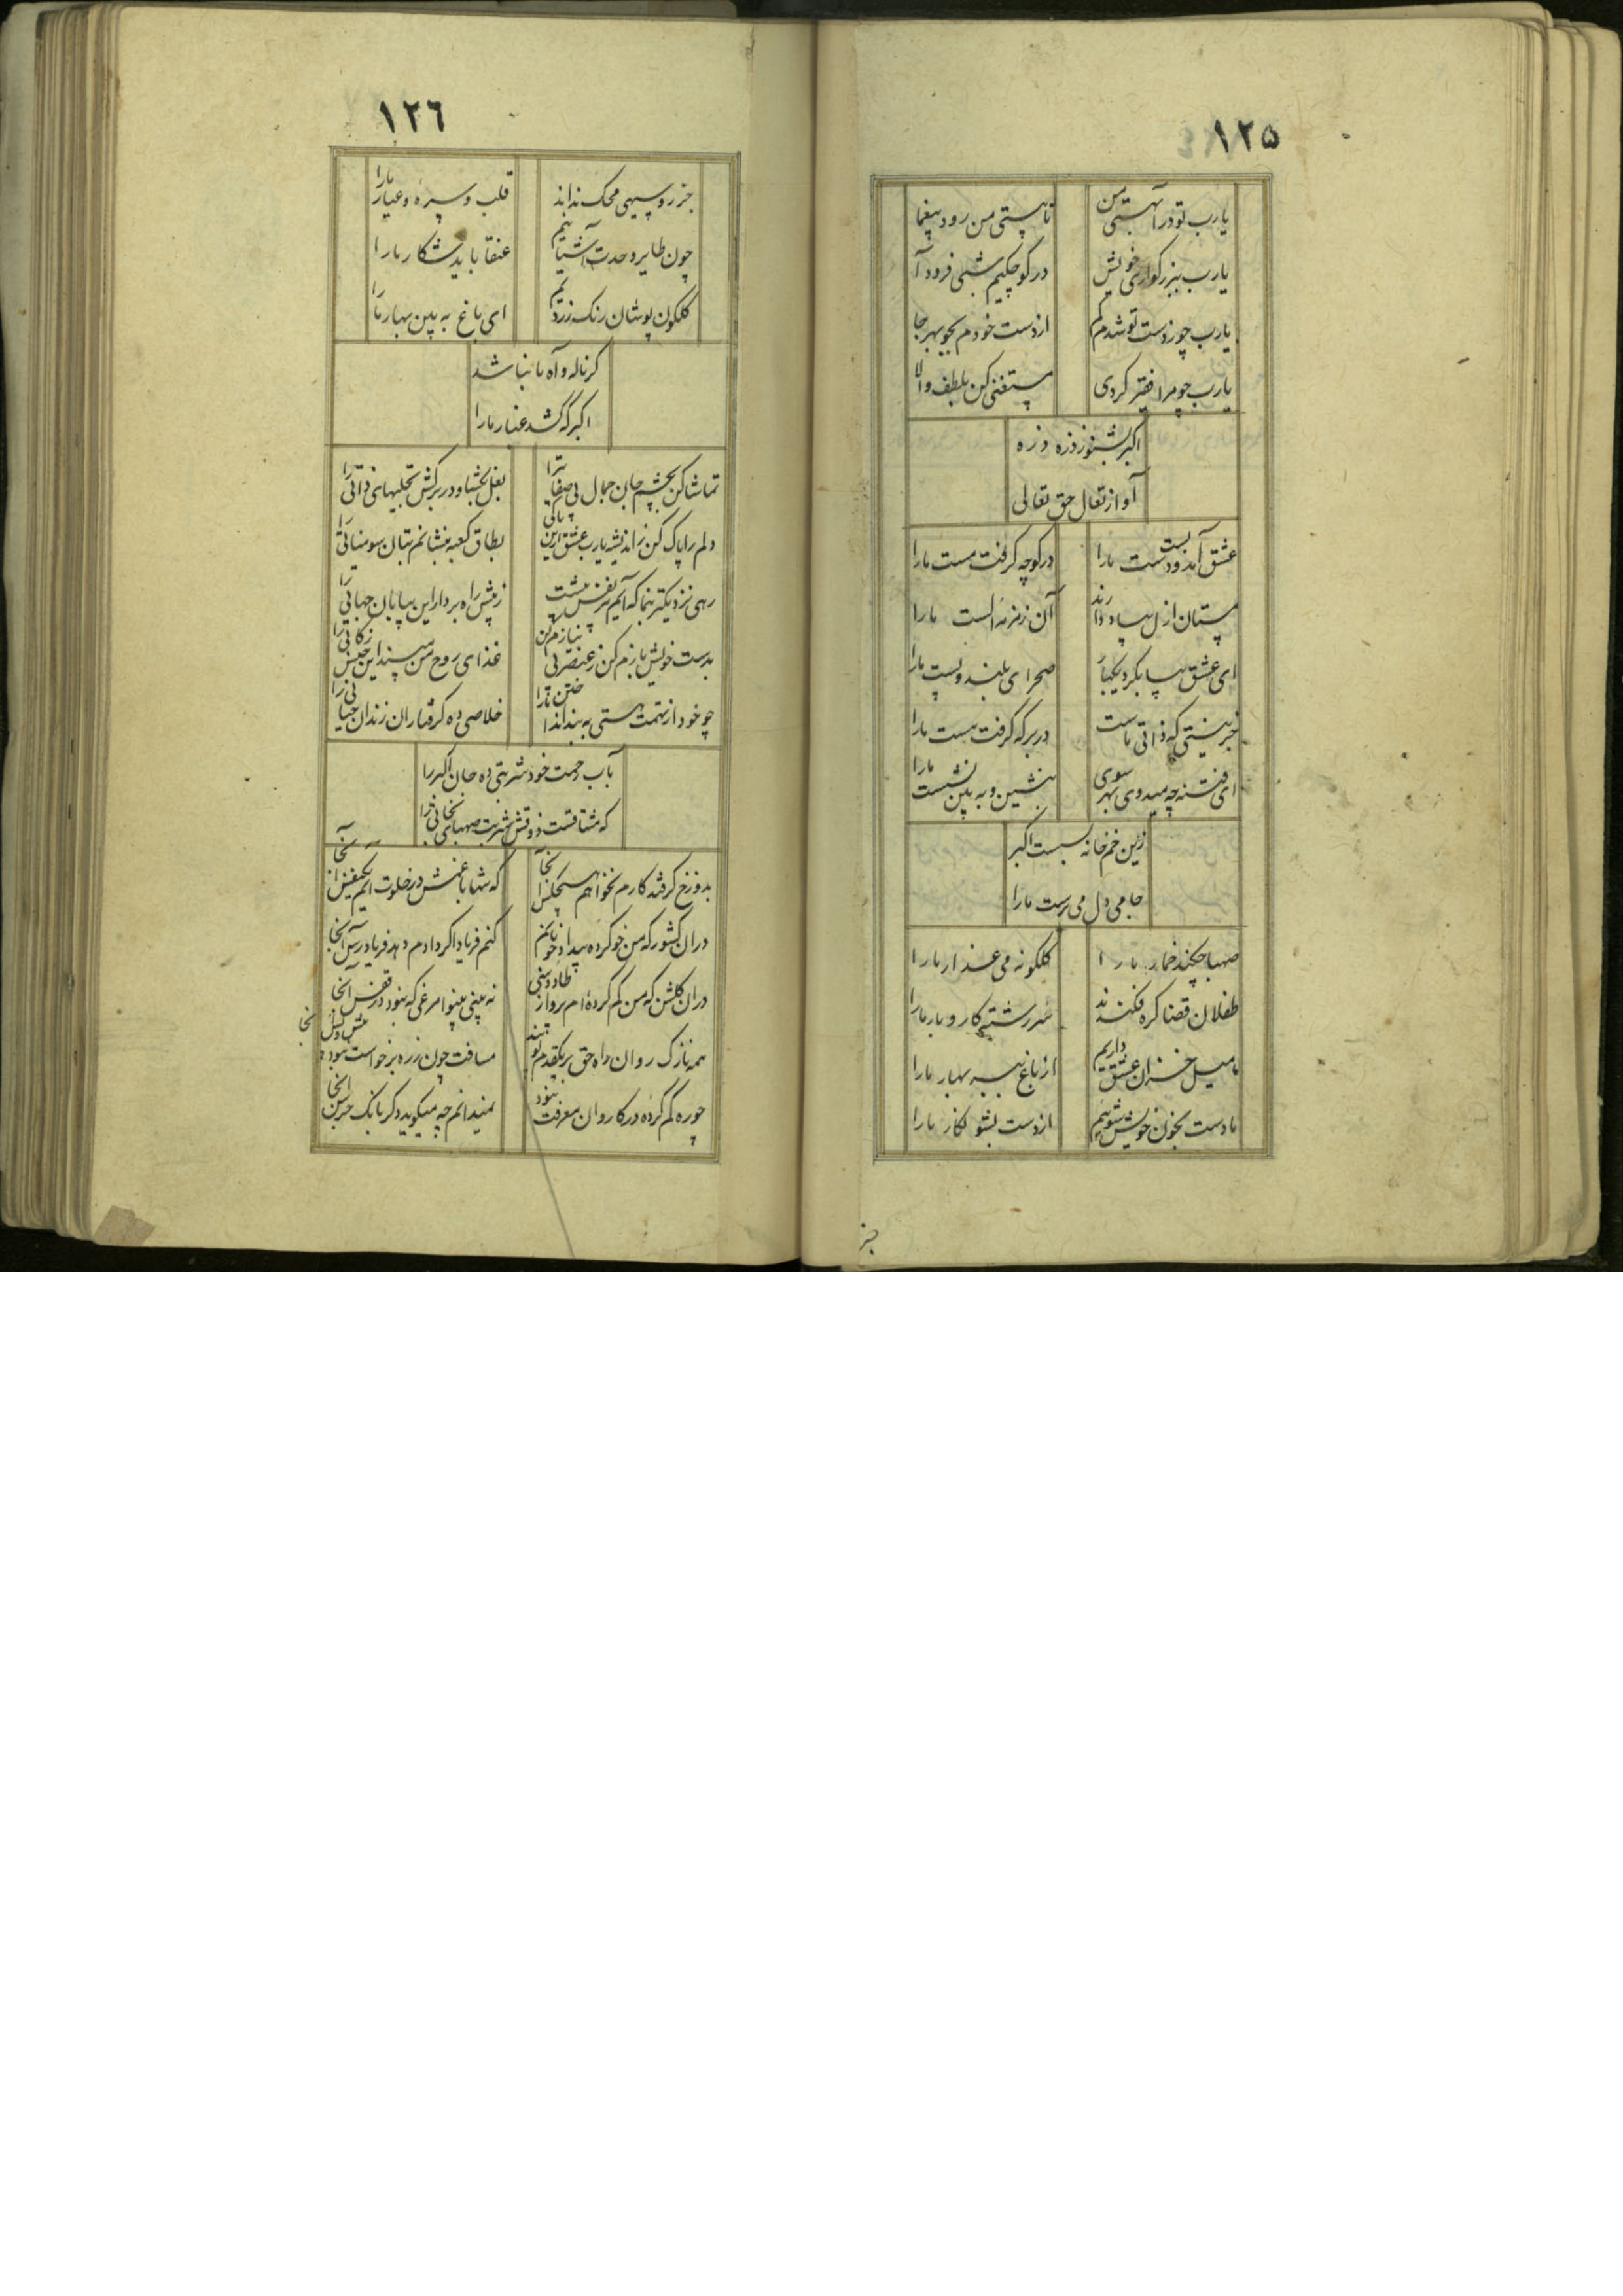 ١٢٥
یارب تو درآ بهستی من
تا هستی من رود بیغما
یارب ببزرکواری خویش
در کوچکیم شبی فرود آ
یارب چو زدست تو شدم کم
از دست خودم بجو بهر جا
یارب چو مرا فقیر کردی
مستغنی کن بلطف والا
اکبر بشنو ز ذره ذره
آواز تعال حق تعالی
عشق آمد و بست دست ما را
در کوچه کرفت مست ما را
مستان ازل بیاد دارند
آن زمزمه الست ما را
ای عشق بیا بکرد یکبار
صحرای بلند و پست ما را
جز نیستی که ذاتی ماست
در بر که کرفت هست ما را
ای فتنه چه میدوی بهر سوی
بنشین و به بین نشست ما را
زین خم خانه بسست اکبر
جامی دل می پرست ما را
صهبا چکند خمار ما را
کلکونه می عذار ما را
طفلان قضا کره فکندند
سر رشتهٔ کار و بار ما را
ما میل خزان عشق داریم
از باغ ببر بهار ما را
ما دست بخون خویش شوییم
از دست بشو نکار ما را
جز
١٢٦
جز روسیهی محک نداند
قلب و سره و عیار ما را
چون طایر وحدت آشیانیم
عنقا باید شکار ما را
کلکون پوشان رنک زردیم
ای باغ به بین بهار ما را
کر ناله و آه ما نباشد
اکبر که کشد غبار ما را
تماشا کن بچشم جان جمال بی صفاتی را
بغل بکشا و در بر کش تجلیهای ذاتی را
دلم را پاک کن ز اندیشه یارب عشق
بطاق کعبه ننشانم بتان سومناتی را
رهی نزدیکتر بنما که آیم
ز پیش راه بردار این بیابان جهاتی را
بدست خویش بازم کن ز عنصر بی نیازم کن
غذای روح من مپسند این جنس زکاتی را
چو خود از تهمت هستی به بند انداختی ما را
خلاصی ده کرفتاران زندان حیاتی را
بآب رحمت خود شربتی ده جان اکبر را
که مشتاقست ذوقش شربت صهبای نجاتی را
بدوزخ کر فتد کارم نخواهم هیچکس آنجا
که شبها با غمش در خلوت ایم یکنفس آنجا
دران کشور که من خو کرده بیداد خوبانم
کنم فریاد اکر دادم دهد فریادرس آنجا
دران کلشن که من کم کرده‌ام پرواز
نه بینی بینوا مرغی که نبود در قفس آنجا
همه نازک روان راه حق بر یکقدم
مسافت چون زره برخواست نبود پیش و پس آنجا
چو ره کم کرده در کاروان معرفت نبود
نمیدانم چه میکوید دکر بانک جرس آنجا